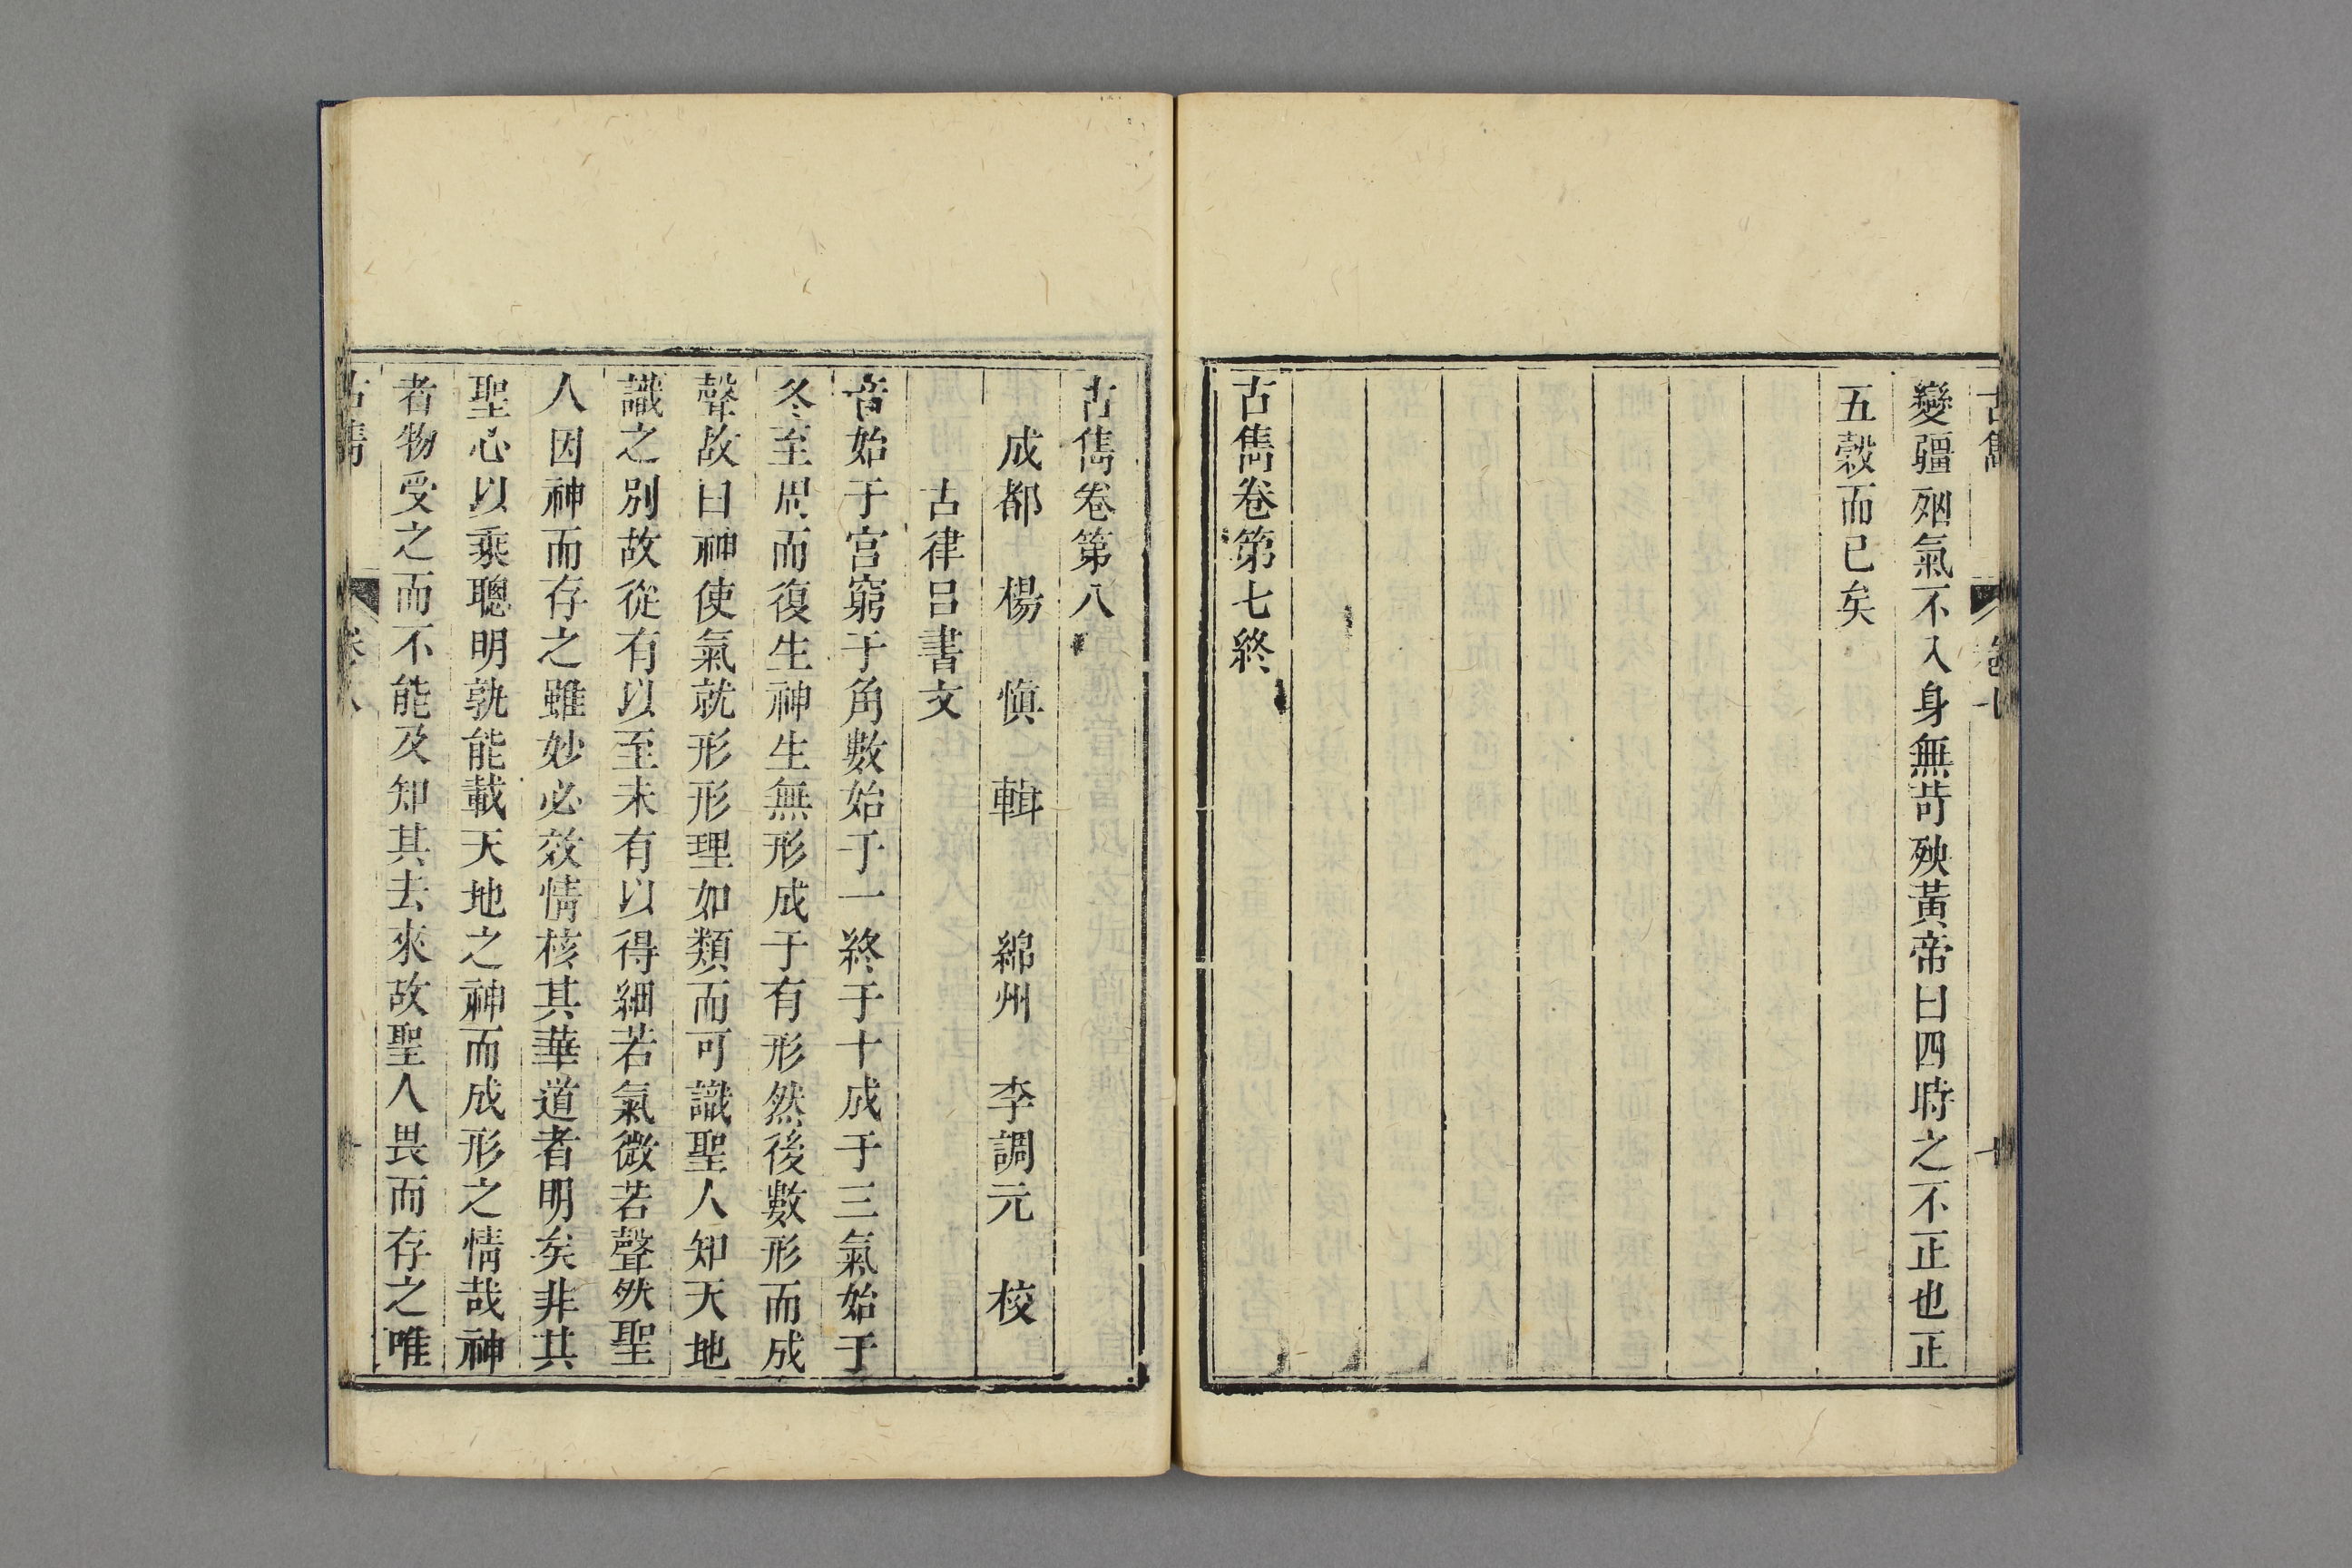 變疆㐫氣不入身無苛殃黃帝曰四時之不正也正
五穀而已矣
古雋卷第七終
古雋卷第八
成都 楊 愼 輯 綿州 李調元 校
古律呂書文
音始于宮窮于角數始于一終于十成于三氣始于
冬至周而復生神生無形成于有形然後數形而成
聲故曰神使氣就形形理如類而可識聖人知天地
識之別故從有以至未有以得細若氣微若聲然聖
人因神而存之雖妙必效情核其華道者明矣非其
聖心以乘聰明孰能載天地之神而成形之情哉神
者物受之而不能及知其去來故聖人畏而存之唯